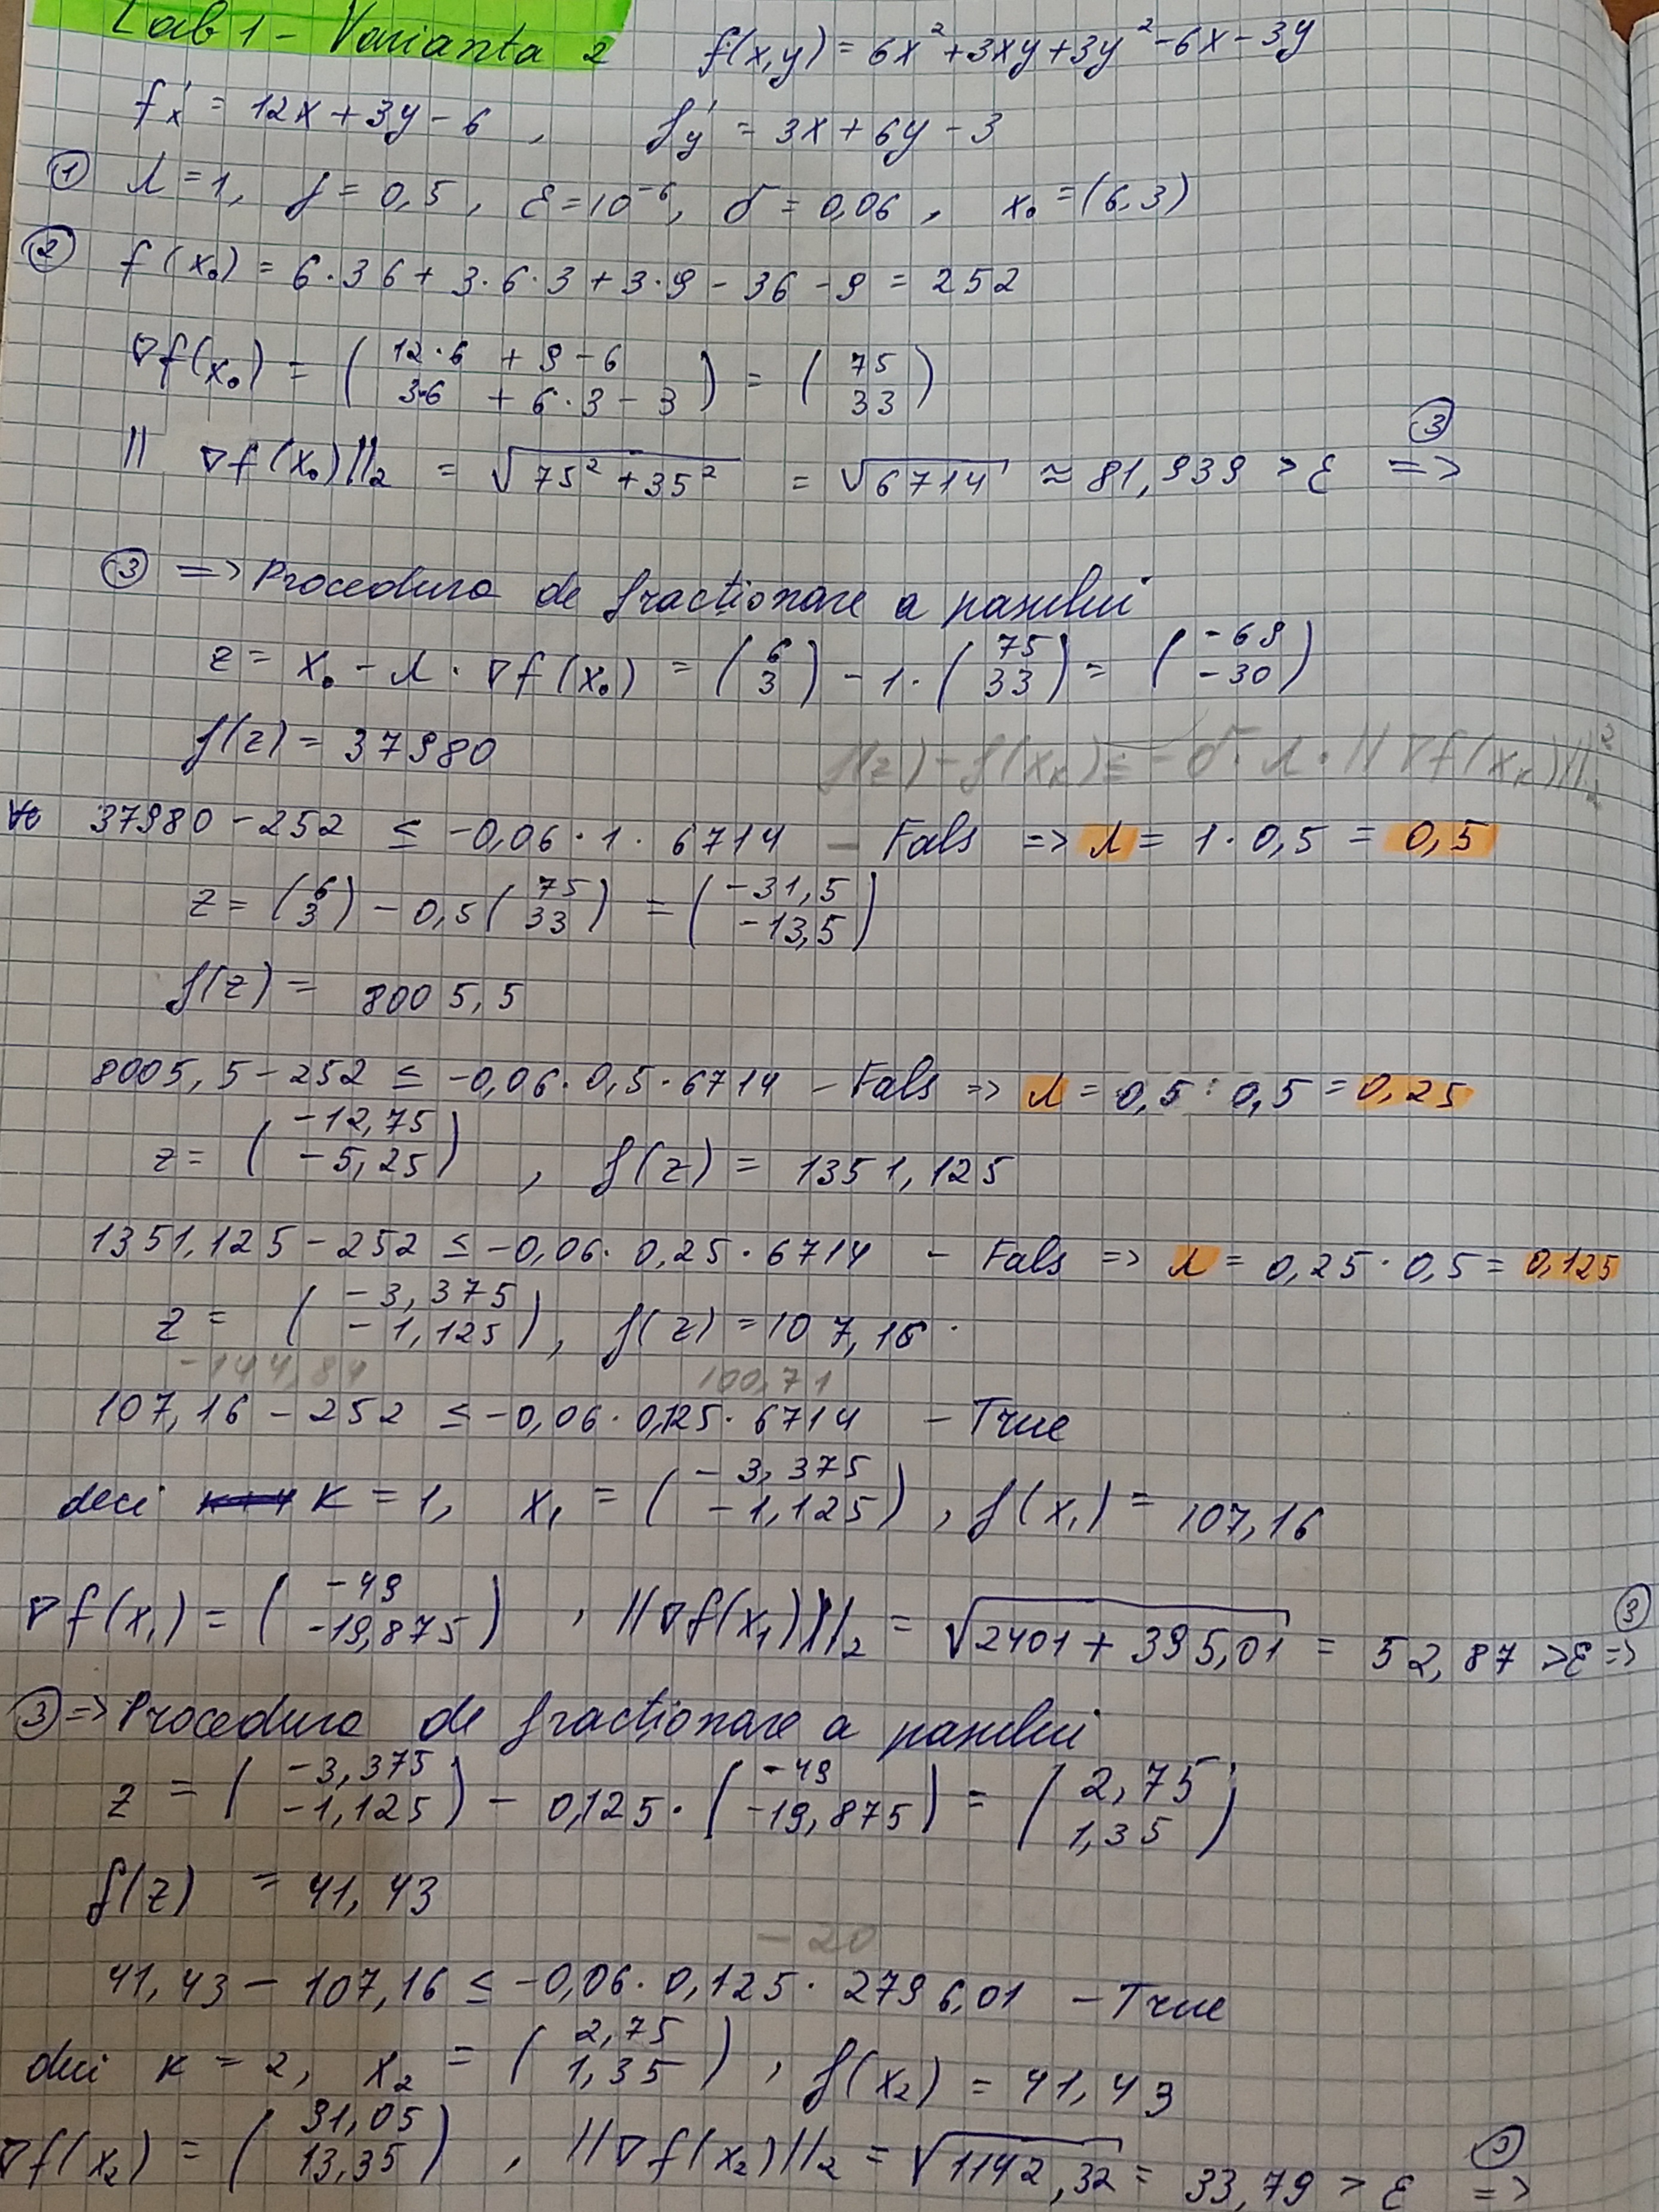 Lab 1 - Varianta 2    f(x,y) = 6x² + 3xy + 3y² - 6x - 3y
f'x = 12x + 3y - 6 ,    f'y = 3x + 6y - 3
① λ = 1, γ = 0,5, ε = 10⁻⁶, δ = 0,06, x₀ = (6,3)
② f(x₀) = 6·36 + 3·6·3 + 3·9 - 36 - 9 = 252
∇f(x₀) = ( 12·6 + 9 - 6 ; 3·6 + 6·3 - 3 ) = ( 75 ; 33 )
|| ∇f(x₀)||₂ = √75² + 35² = √6714 ≈ 81,939 > ε ⇒ ③
③ => Procedura de fracționare a pasului
z = x₀ - λ · ∇f(x₀) = ( 6 ; 3 ) - 1· ( 75 ; 33 ) = ( -69 ; -30 )
f(z) = 37980
f(z) - f(xₖ) ≤ -δ · λ · ||∇f(xₖ)||₂²
37980 - 252 ≤ -0,06 · 1 · 6714 - Fals => λ = 1 · 0,5 = 0,5
z = ( 6 ; 3 ) - 0,5 ( 75 ; 33 ) = ( -31,5 ; -13,5 )
f(z) = 8005,5
8005,5 - 252 ≤ -0,06 · 0,5 · 6714 - Fals => λ = 0,5 · 0,5 = 0,25
z = ( -12,75 ; -5,25 ) , f(z) = 1351,125
1351,125 - 252 ≤ -0,06 · 0,25 · 6714 - Fals => λ = 0,25 · 0,5 = 0,125
z = ( -3,375 ; -1,125 ) , f(z) = 107,16
-144,84    100,71
107,16 - 252 ≤ -0,06 · 0,125 · 6714 - True
deci k = 1, x₁ = ( -3,375 ; -1,125 ) , f(x₁) = 107,16
∇f(x₁) = ( -49 ; -19,875 ) , ||∇f(x₁)||₂ = √2401 + 395,01 = 52,87 > ε => ③
③ => Procedura de fracționare a pasului
z = ( -3,375 ; -1,125 ) - 0,125 · ( -49 ; -19,875 ) = ( 2,75 ; 1,35 )
f(z) = 41,43
-20
41,43 - 107,16 ≤ -0,06 · 0,125 · 2796,01 - True
deci k = 2, x₂ = ( 2,75 ; 1,35 ) , f(x₂) = 41,43
∇f(x₂) = ( 31,05 ; 13,35 ) , ||∇f(x₂)||₂ = √1142,32 = 33,79 > ε => ③